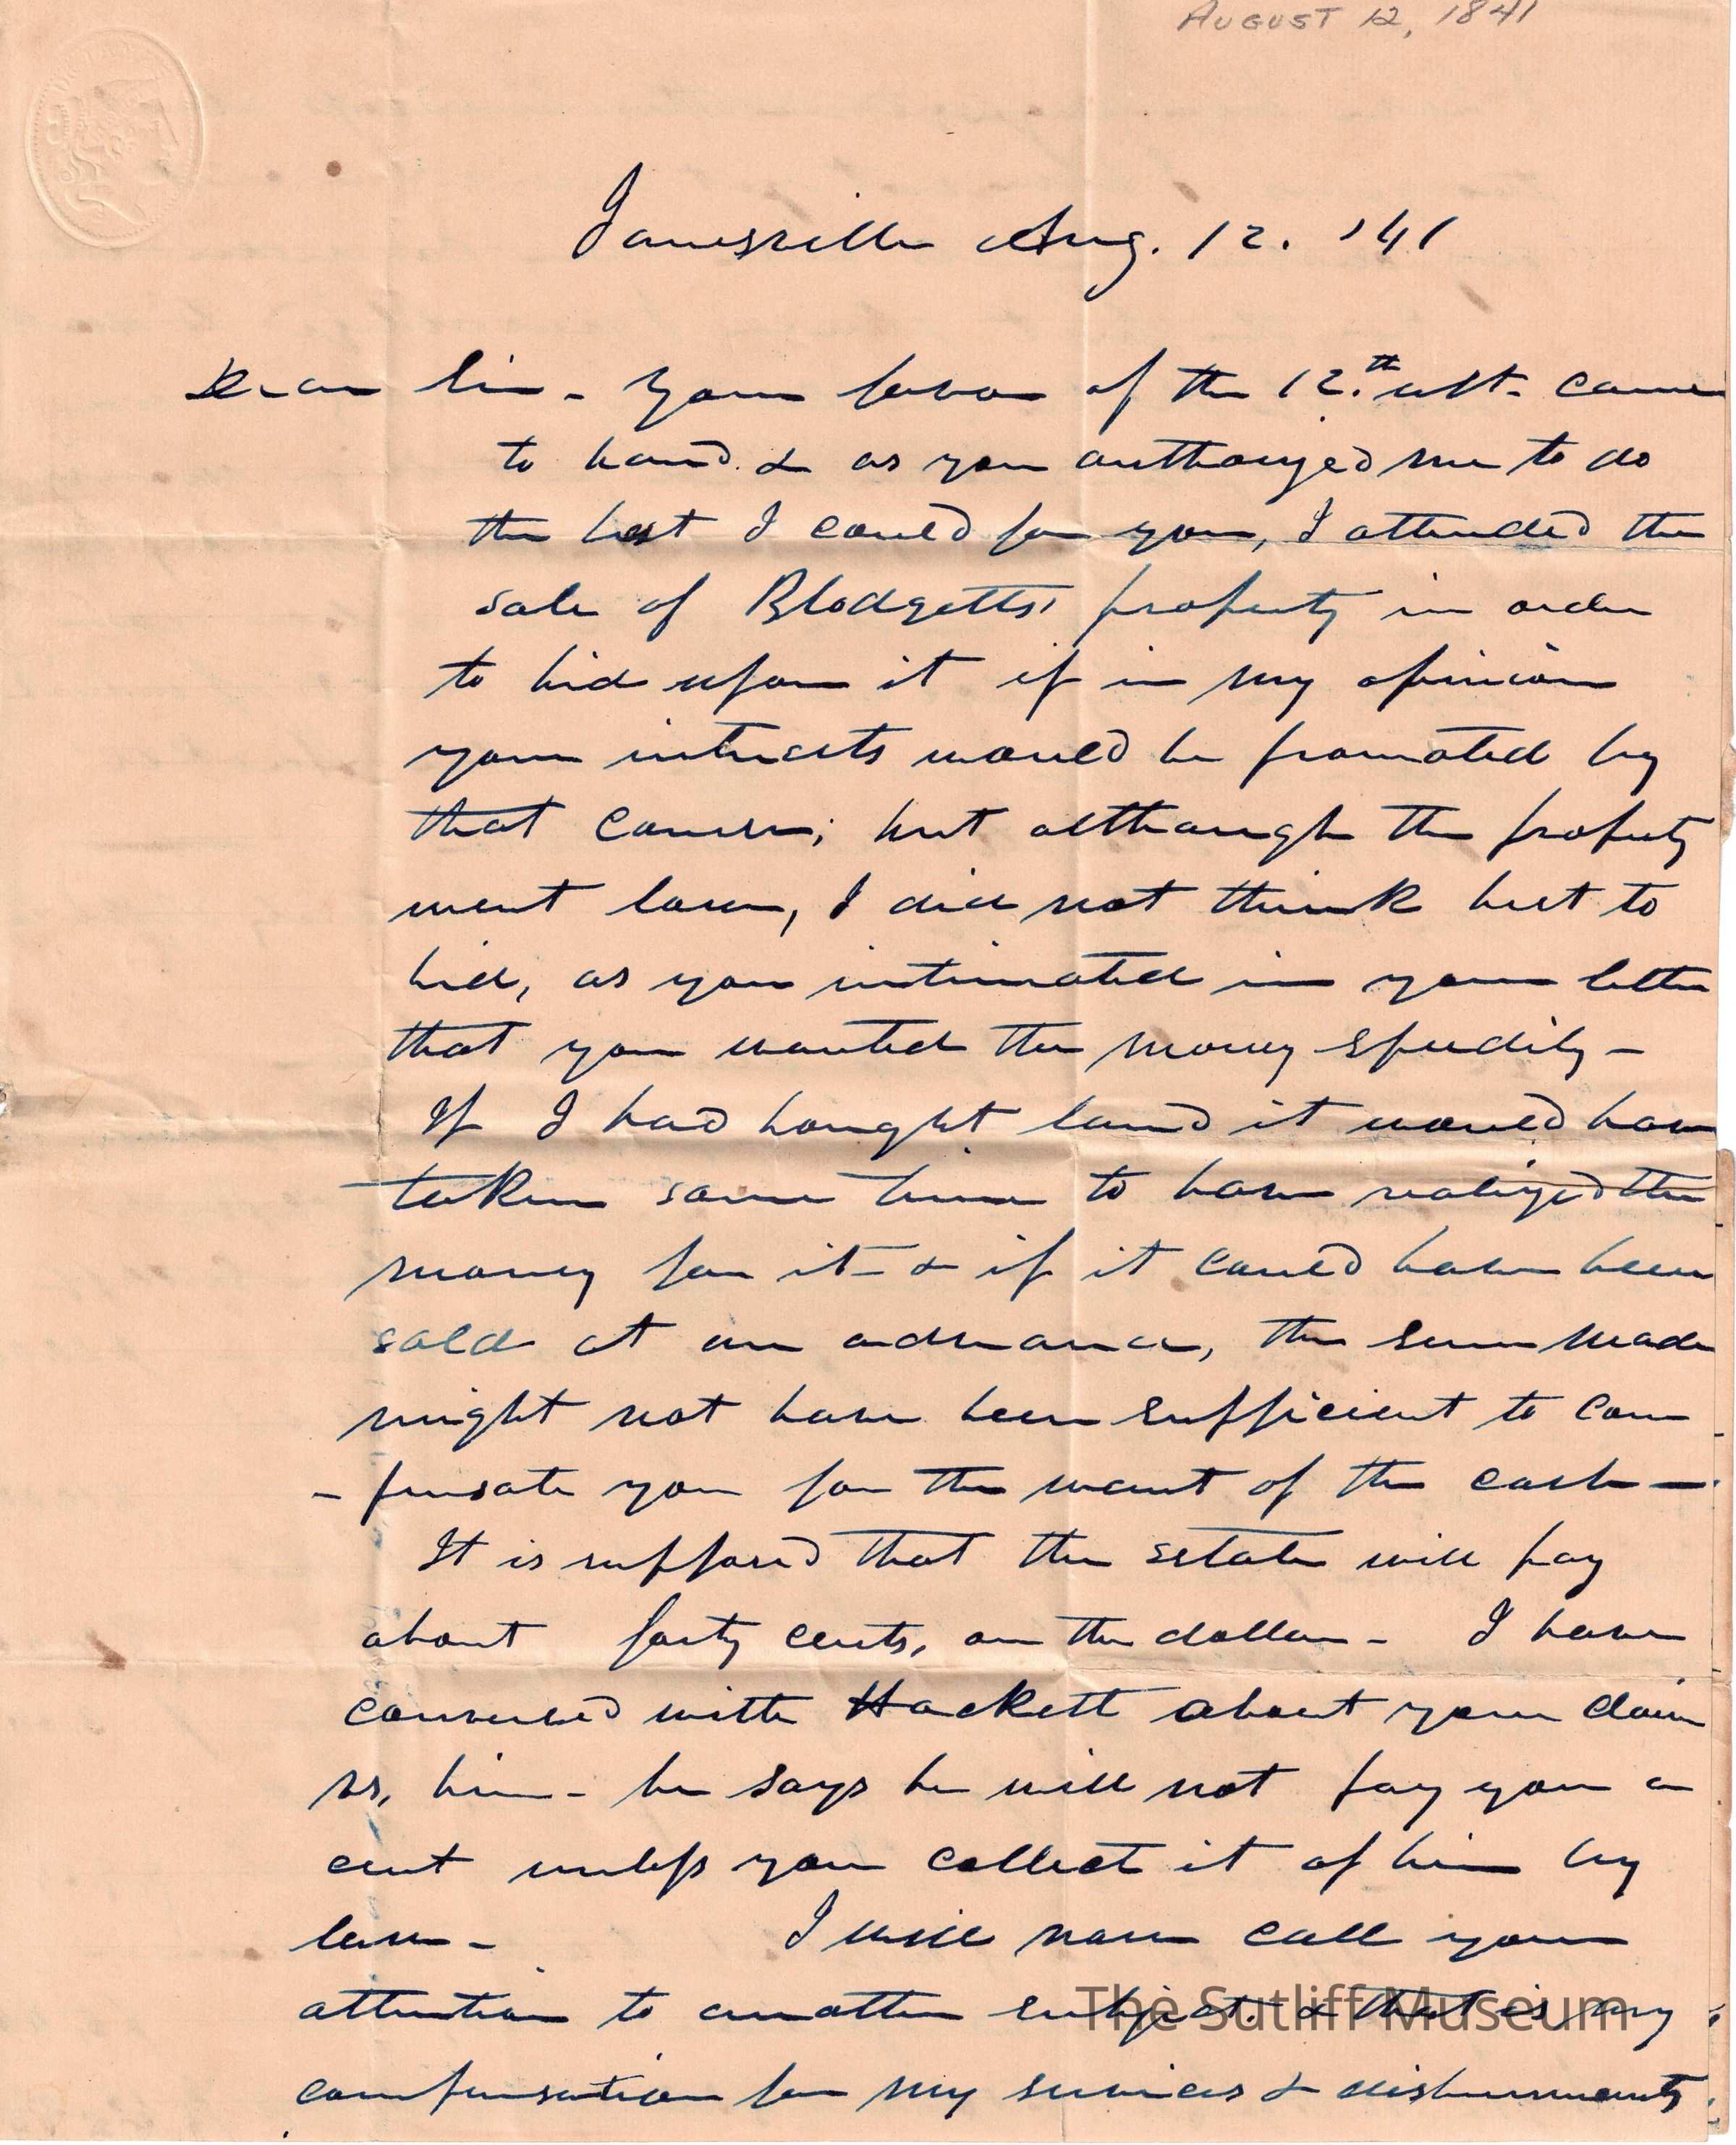 AUGUST 12, 1841
Janesville Aug. 12. '41
Dear Sir - Your favor of the 12.th ult. came
to hand. & as you authorized me to do
the best I could for you, I attended the
sale of Blodgetts' property in order
to bid upon it if in my opinion
your interests would be promoted by
that course; but although the property
went low, I did not think best to
bid, as you intimated in your letter
that you wanted the money speedily -
If I had bought land it would have
taken some time to have realized the
money for it - & if it could have been
sold at an advance, the sum made
might not have been sufficient to com
- pensate you for the want of the cash -
It is supposed that the estate will pay
about forty cents, on the dollar - I have
conversed with Hackett about your claim
vs, him - he says he will not pay you a
cent unless you collect it of him by
law - I will now call your
attention to another subject. & that is my
compensation for my services & disbursements
The Sutliff Museum